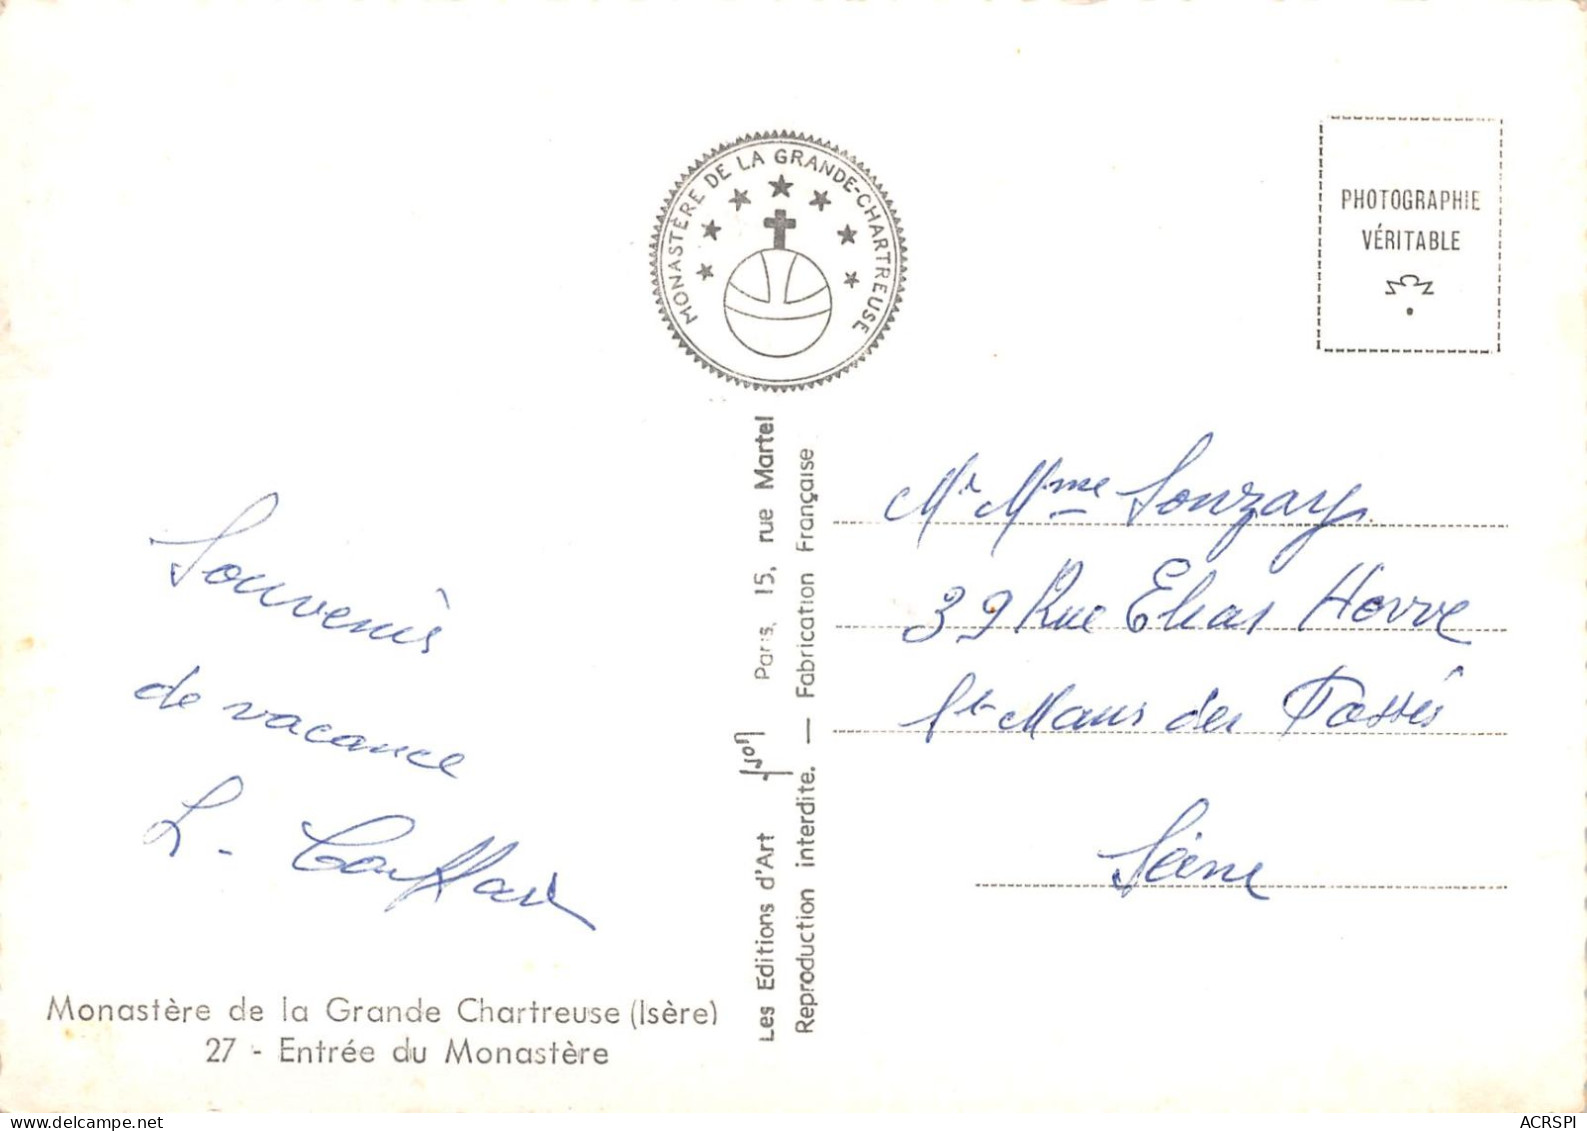 MONASTÈRE DE LA GRANDE-CHARTREUSE
PHOTOGRAPHIE
VÉRITABLE
Souvenirs
de vacance
L.
Monastère de la Grande Chartreuse (Isère)
27 - Entrée du Monastère
Les Editions d'Art Yvon Paris, 15, rue Martel
Reproduction interdite. — Fabrication Française
Mr Mme Souzay
39 Rue Elias Howe
St Maur des Fossés
Seine
www.delcampe.net
ACRSPI